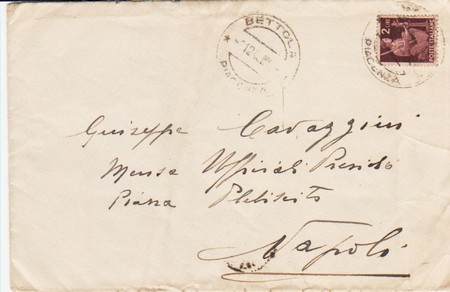 BETTOLA
PIACENZA
2 LIRE
POSTE ITALIANE
PIACENZA
Giuseppe Cavaggini
Mensa Ufficiali Presidio
Piazza Plebiscito
Napoli